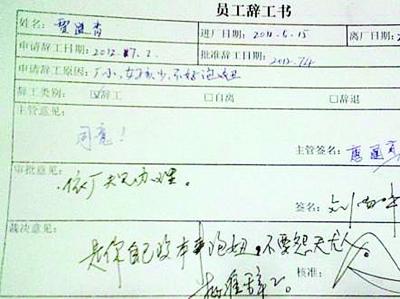 员工辞工书
姓名: 进厂日期: 2011.5.15 离厂日期:
申请辞工日期: 2012.7.2. 批准辞工日期: 2012.7.4
申请辞工原因: 厂小,女孩少,不好泡妞
辞工类别: ☑辞工 □自离 □辞退
主管意见:
同意!
主管签名:
审批意见:
依厂规办理。
签名:
裁决意见:
是你自己没本事泡妞,不要怨天尤人
批准辞工。 核准: